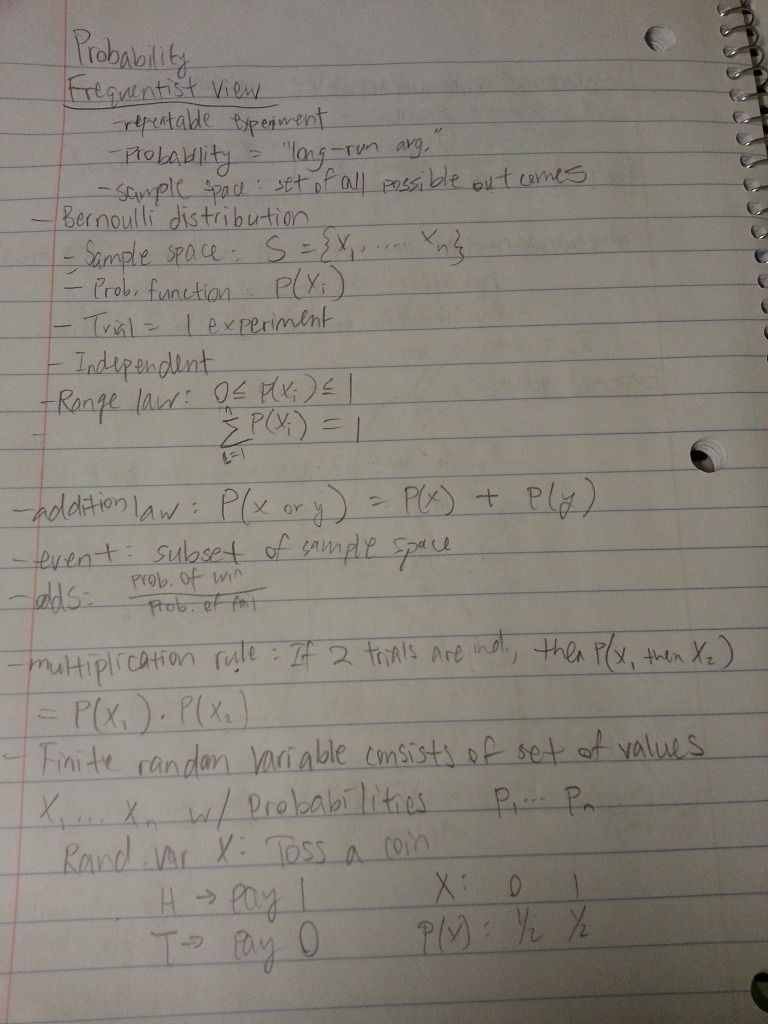 Probability
Frequentist view
- repeatable experiment
- probability = "long-run avg."
- sample space: set of all possible outcomes
- Bernoulli distribution
- Sample space: S = {X₁, .... Xₙ}
- Prob. function: P(Xᵢ)
- Trial = 1 experiment
- Independent
- Range law: 0 ≤ P(Xᵢ) ≤ 1
- ∑ᵢ₌₁ⁿ P(Xᵢ) = 1
- addition law: P(x or y) = P(x) + P(y)
- event: subset of sample space
- odds: prob. of win
prob. of fail
- multiplication rule: If 2 trials are ind., then P(X₁ then X₂)
= P(X₁) · P(X₂)
- Finite random variable consists of set of values
X₁ ... Xₙ w/ probabilities P₁ ... Pₙ
Rand. var X: Toss a coin
H → pay 1 X: 0 1
T → pay 0 P(X): 1/2 1/2